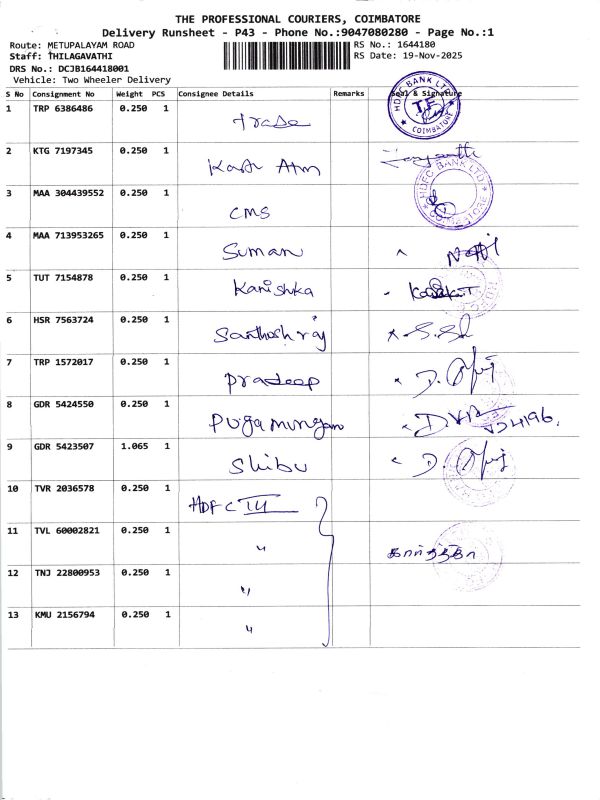 THE PROFESSIONAL COURIERS, COIMBATORE
Delivery Runsheet - P43 - Phone No.:9047080280 - Page No.:1
Route: METUPALAYAM ROAD
RS No.: 1644180
Staff: THILAGAVATHI
RS Date: 19-Nov-2025
DRS No.: DCJB164418001
Vehicle: Two Wheeler Delivery
S No Consignment No Weight PCS Consignee Details Remarks Seal & Signature
1 TRP 6386486 0.250 1 trade
HDFC BANK LTD T.F COIMBATORE
2 KTG 7197345 0.250 1
3 MAA 304439552 0.250 1 CMS
HDFC BANK LTD COIMBATORE
4 MAA 713953265 0.250 1 Suman
5 TUT 7154878 0.250 1 Kanishka
6 HSR 7563724 0.250 1 Santhosh raj
7 TRP 1572017 0.250 1 Pradeep
8 GDR 5424550 0.250 1
9 GDR 5423507 1.065 1 Shibu
10 TVR 2036578 0.250 1 HDFC III
11 TVL 60002821 0.250 1 "
12 TNJ 22800953 0.250 1 "
13 KMU 2156794 0.250 1 "